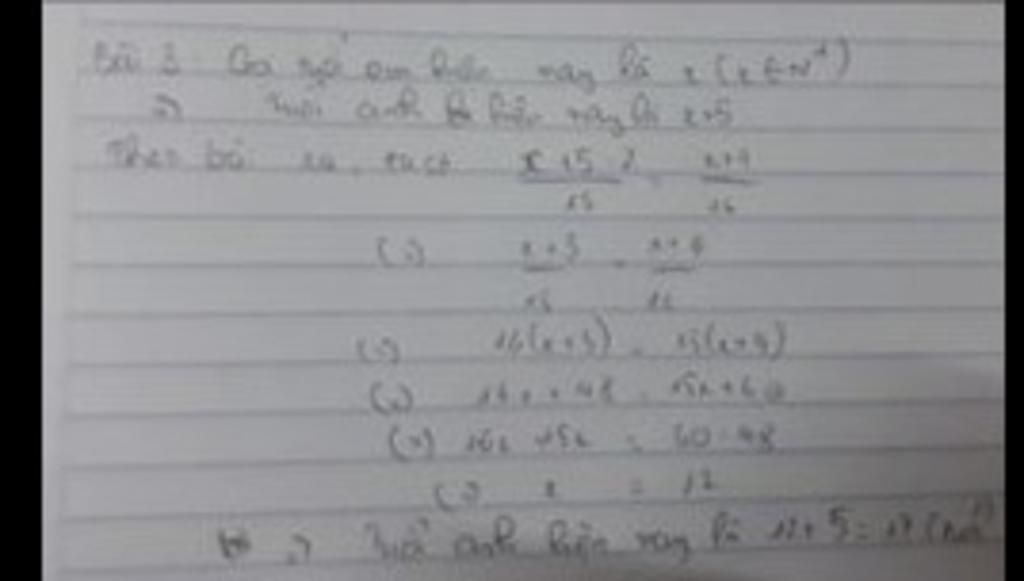 Bài 3 Gọi tuổi em hiện nay là x (x ∈ N*)
=> Tuổi anh hiện nay là x+5
Theo bài ra, ta có x+5-2/15 = x+4/16
(=) x+3/15 = x+4/16
(=) 16(x+3) = 15(x+4)
(=) 16x+48 = 15x+60
(=) 16x-15x = 60-48
(=) x = 12
=> Tuổi anh hiện nay là 12+5=17 (tuổi)